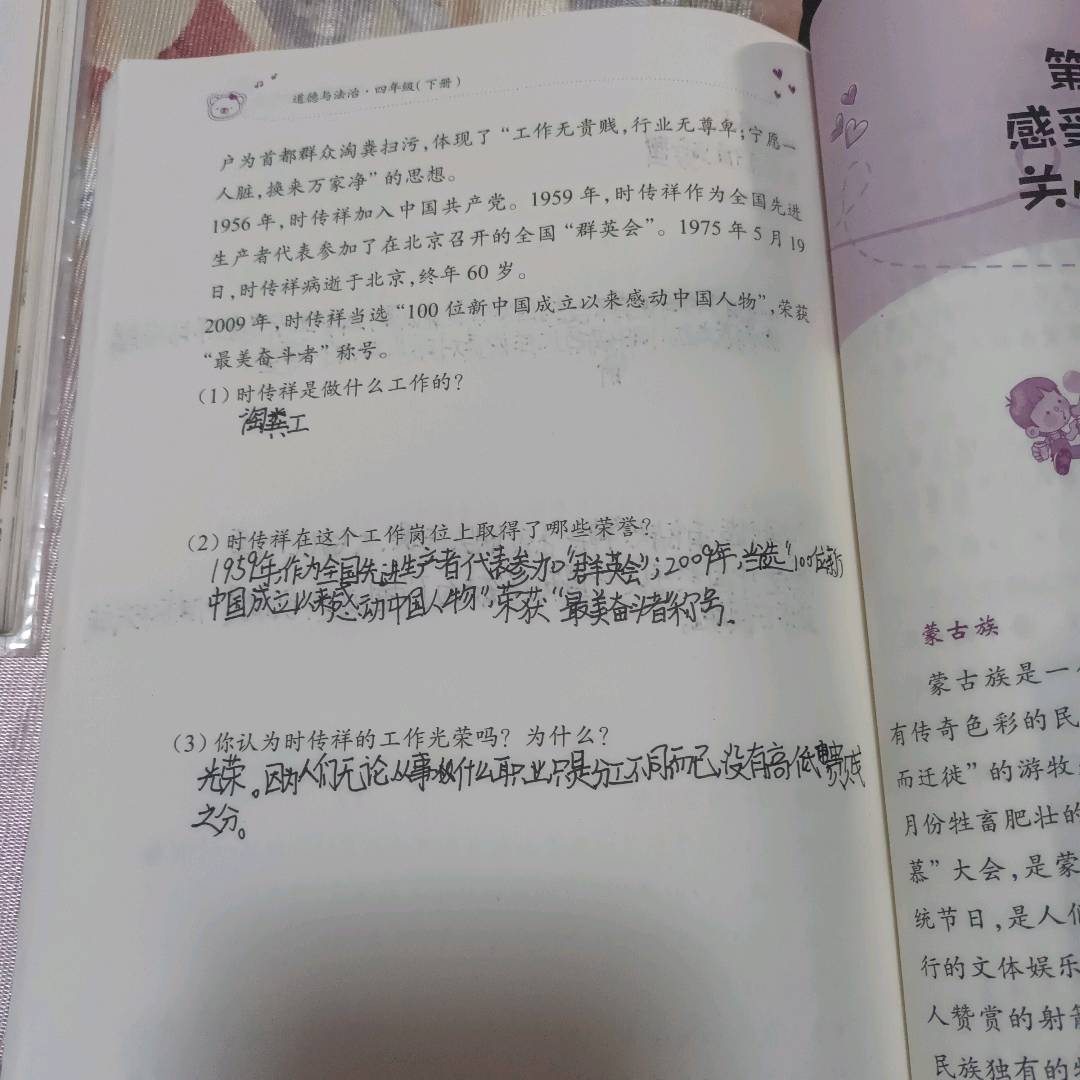 道德与法治·四年级(下册)
户为首都群众淘粪扫污,体现了“工作无贵贱,行业无尊卑;宁愿一
人脏,换来万家净”的思想。
1956年,时传祥加入中国共产党。1959年,时传祥作为全国先进
生产者代表参加了在北京召开的全国“群英会”。1975年5月19
日,时传祥病逝于北京,终年60岁。
2009年,时传祥当选“100位新中国成立以来感动中国人物”,荣获
“最美奋斗者”称号。
(1)时传祥是做什么工作的?
淘粪工
(2)时传祥在这个工作岗位上取得了哪些荣誉?
1959年,作为全国先进生产者代表参加“群英会”;2009年,当选“100位新
中国成立以来感动中国人物”,荣获“最美奋斗者”称号。
(3)你认为时传祥的工作光荣吗?为什么?
光荣。因为人们无论从事什么职业,只是分工不同而已,没有高低贵贱
之分。
第
感受
关
蒙古族
蒙古族是一个
有传奇色彩的民
而迁徙”的游牧
月份牲畜肥壮的
慕”大会,是蒙
统节日,是人们
行的文体娱乐
人赞赏的射箭
民族独有的